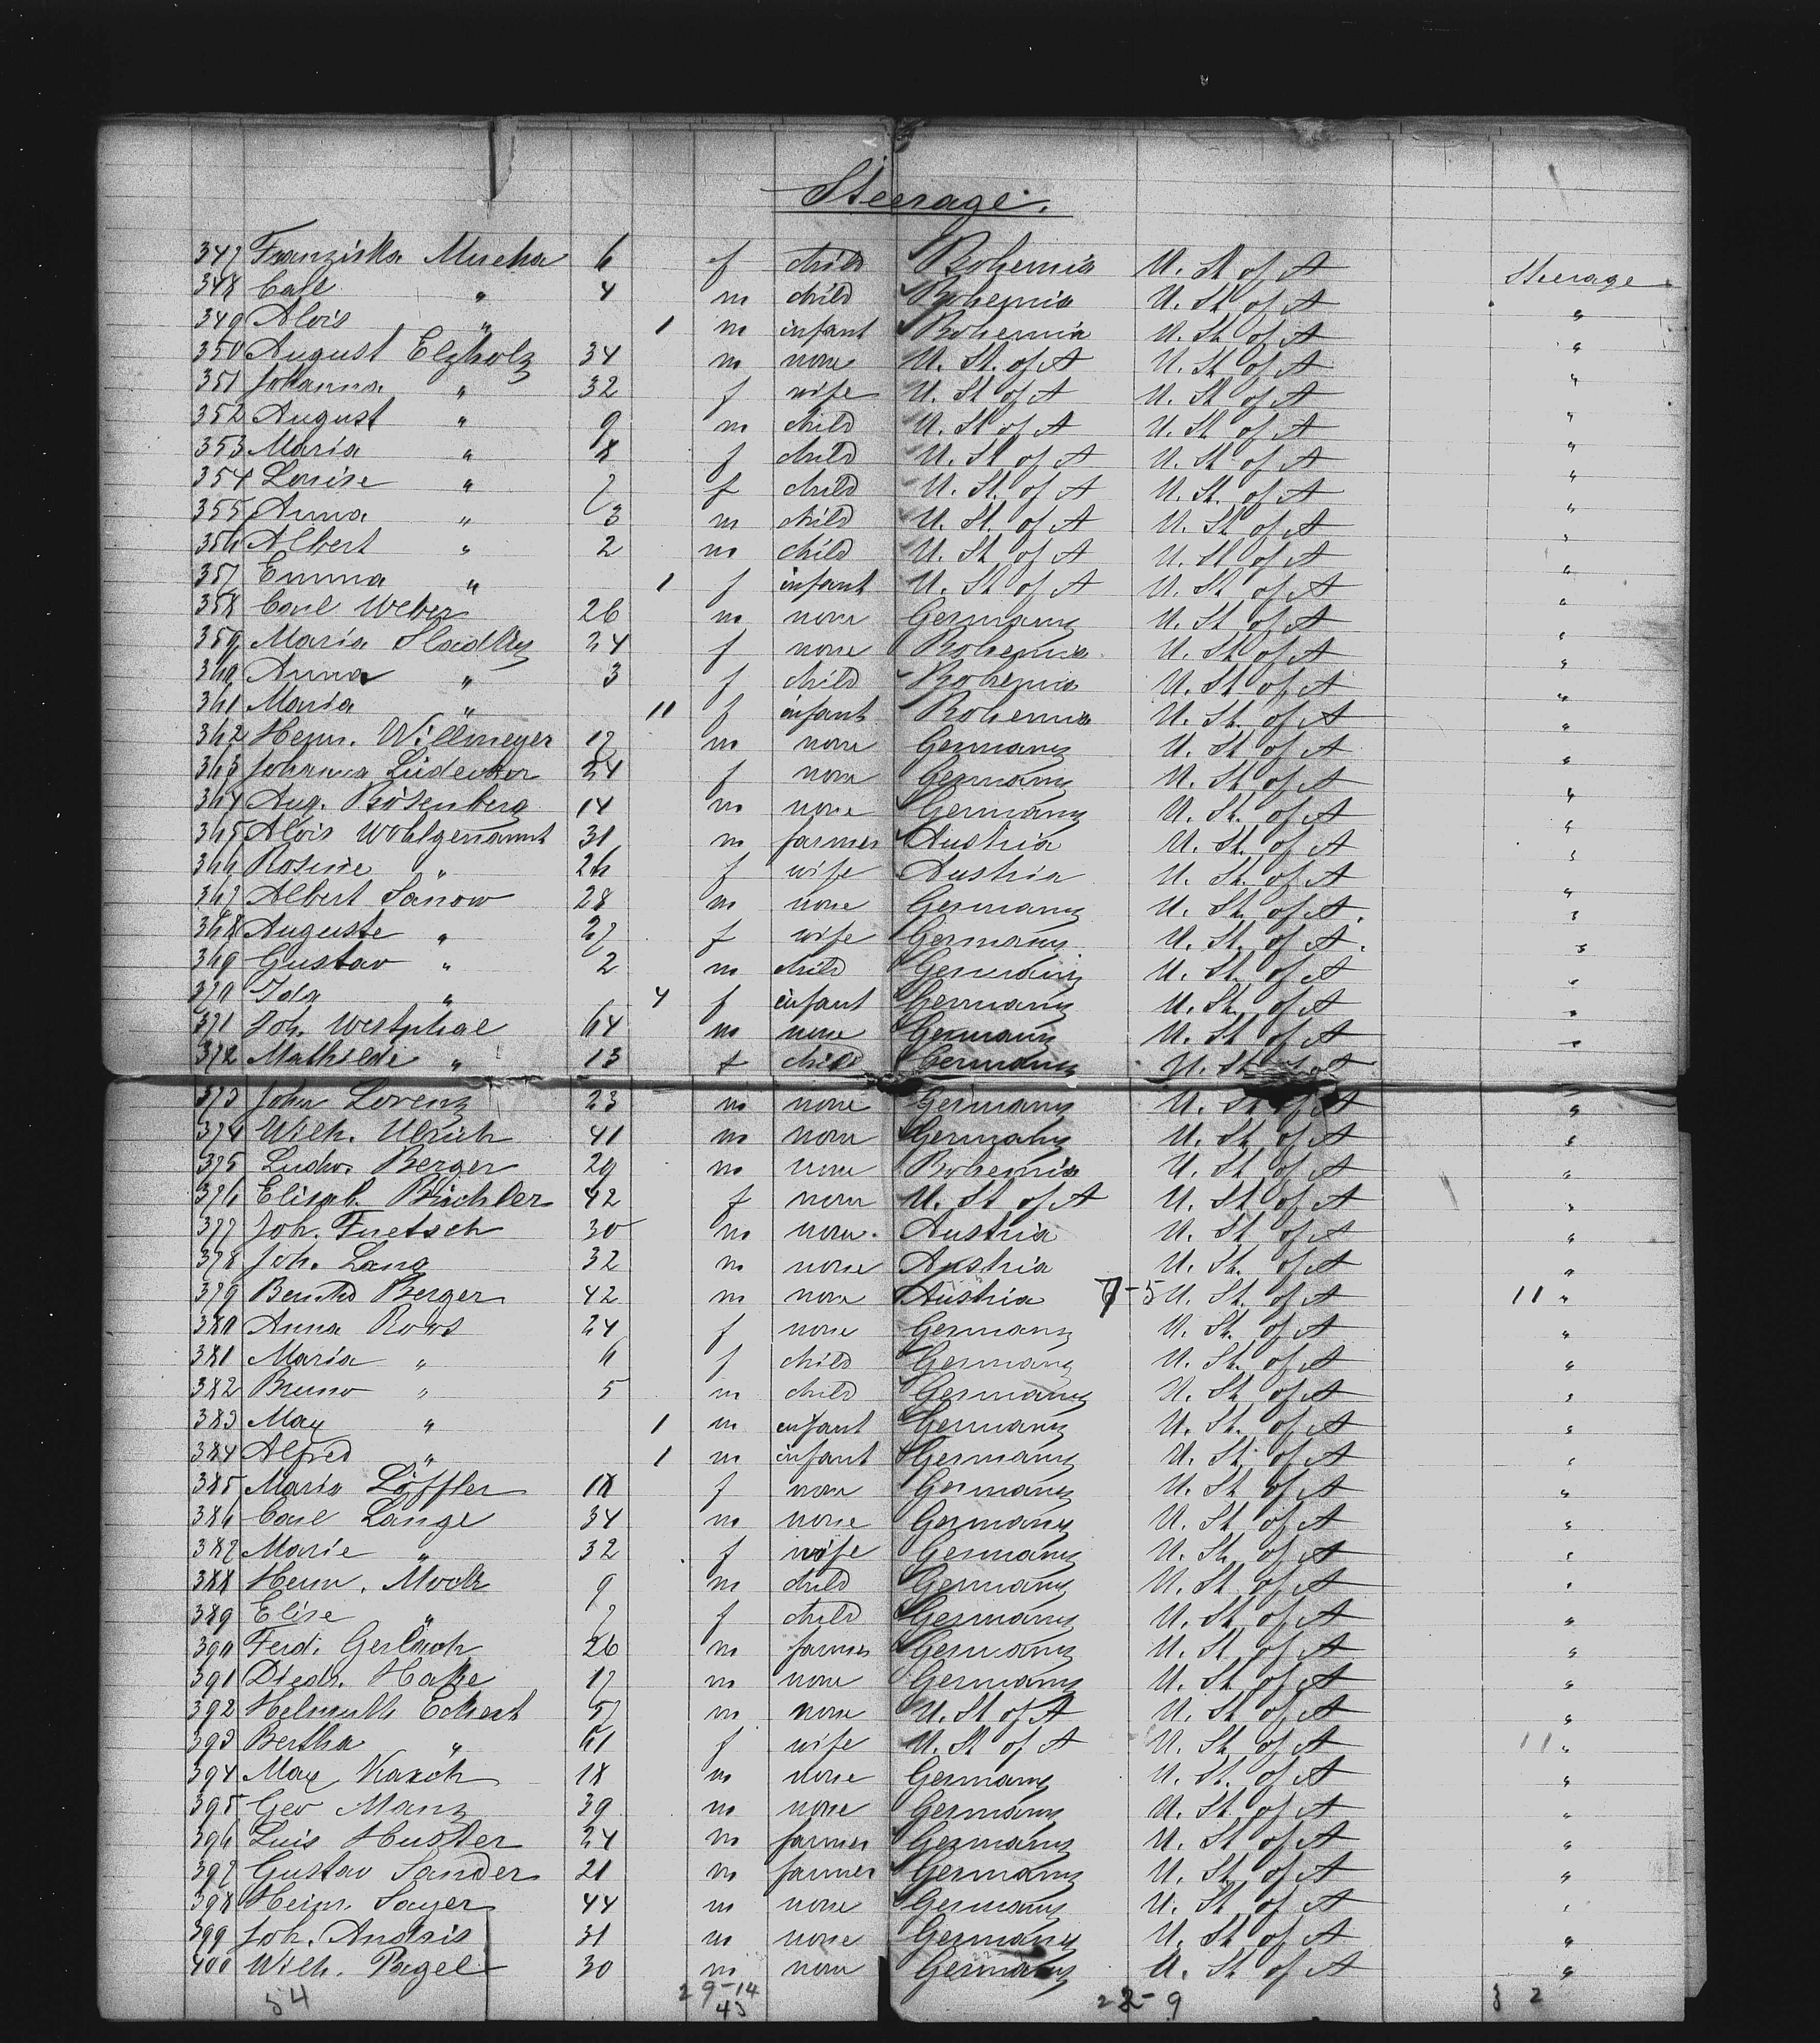 Steerage.
347 Franziska Mucha 6 f child Bohemia U. St of A Steerage
348 Carl " 4 m child Bohemia U. St of A "
349 Alois " 1 m infant Bohemia U. St of A "
350 August Elzholz 34 m none U. St. of A U. St of A "
351 Johanna " 32 f wife U. St of A U. St of A "
352 August " 9 m child U. St of A U. St of A "
353 Maria " 8 f child U. St of A U. St of A "
354 Louise " 7 f child U. St. of A U. St. of A "
355 Anna " 3 m child U. St. of A U. St of A "
356 Albert " 2 m child U. St of A U. St of A "
357 Emma " 1 f infant U. St of A U. St of A "
358 Carl Weber 26 m none Germany U. St of A "
359 Maria Sladky 24 f none Bohemia U. St of A "
360 Anna " 3 f child Bohemia U. St of A "
361 Maria " 11 f infant Bohemia U. St. of A "
362 Herm. Willmeyer 17 m none Germany U. St of A "
363 Johanna 24 f none Germany U. St of A "
364 Aug. Rosenberg 14 m none Germany U. St. of A "
365 Alois Wohlgenannt 31 m farmer Austria U. St. of A "
366 Rosine " 26 f wife Austria U. St. of A "
367 Albert Sanow 28 m none Germany U. St. of A. "
368 Auguste " 27 f wife Germany U. St. of A. "
369 Gustav " 2 m child Germany U. St. of A "
370 Ida " 4 f infant Germany U. St. of A "
371 Joh. Westphal 64 m none Germany U. St of A "
372 Mathilde " 13 f child Germany U. St of A
373 John Lorenz 23 m none Germany U. St of A "
374 Wilh. Ulrich 41 m none Germany U. St of A "
375 Ludw. Berger 29 m none Bohemia U. St of A "
376 Elisab. Büchler 42 f none U. St of A U. St of A "
377 Joh. Fuetsch 30 m none. Austria U. St of A "
378 Joh. Lang 32 m none Austria U. St. of A "
379 Bernhd Berger 42 m none Austria 7-5 U. St. of A 11 "
380 Anna Rows 24 f none Germany U. St. of A "
381 Maria " 6 f child Germany U. St. of A "
382 Bruno " 5 m child Germany U. St. of A "
383 Max " 1 m infant Germany U. St. of A "
384 Alfred " 1 m infant Germany U. St. of A "
385 Maria Löffler 18 f none Germany U. St of A "
386 Carl Lange 34 m none Germany U. St of A "
387 Marie " 32 f wife Germany U. St. of A "
388 Herm. Mock 9 m child Germany U. St of A "
389 Elise " 7 f child Germany U. St of A "
390 Ferd. Gerlach 26 m farmer Germany U. St of A "
391 Diedr. Hake 17 m none Germany U. St. of A "
392 Helmuth Eckert 57 m none U. St of A U. St of A "
393 Bertha " 61 f wife U. St of A U. St. of A 11 "
394 Max Karch 18 m none Germany U. St. of A "
395 Geo Manz 39 m none Germany U. St of A "
396 Luis Huster 24 m farmer Germany U. St of A "
397 Gustav Sander 21 m farmer Germany U. St of A "
398 Heinr. Sayer 44 m none Germany U. St of A "
399 Joh. Andris 31 m none Germany U. St of A "
400 Wilh. Pagel 30 m none Germany U. St of A "
54 29-14 22-9 3 2
43